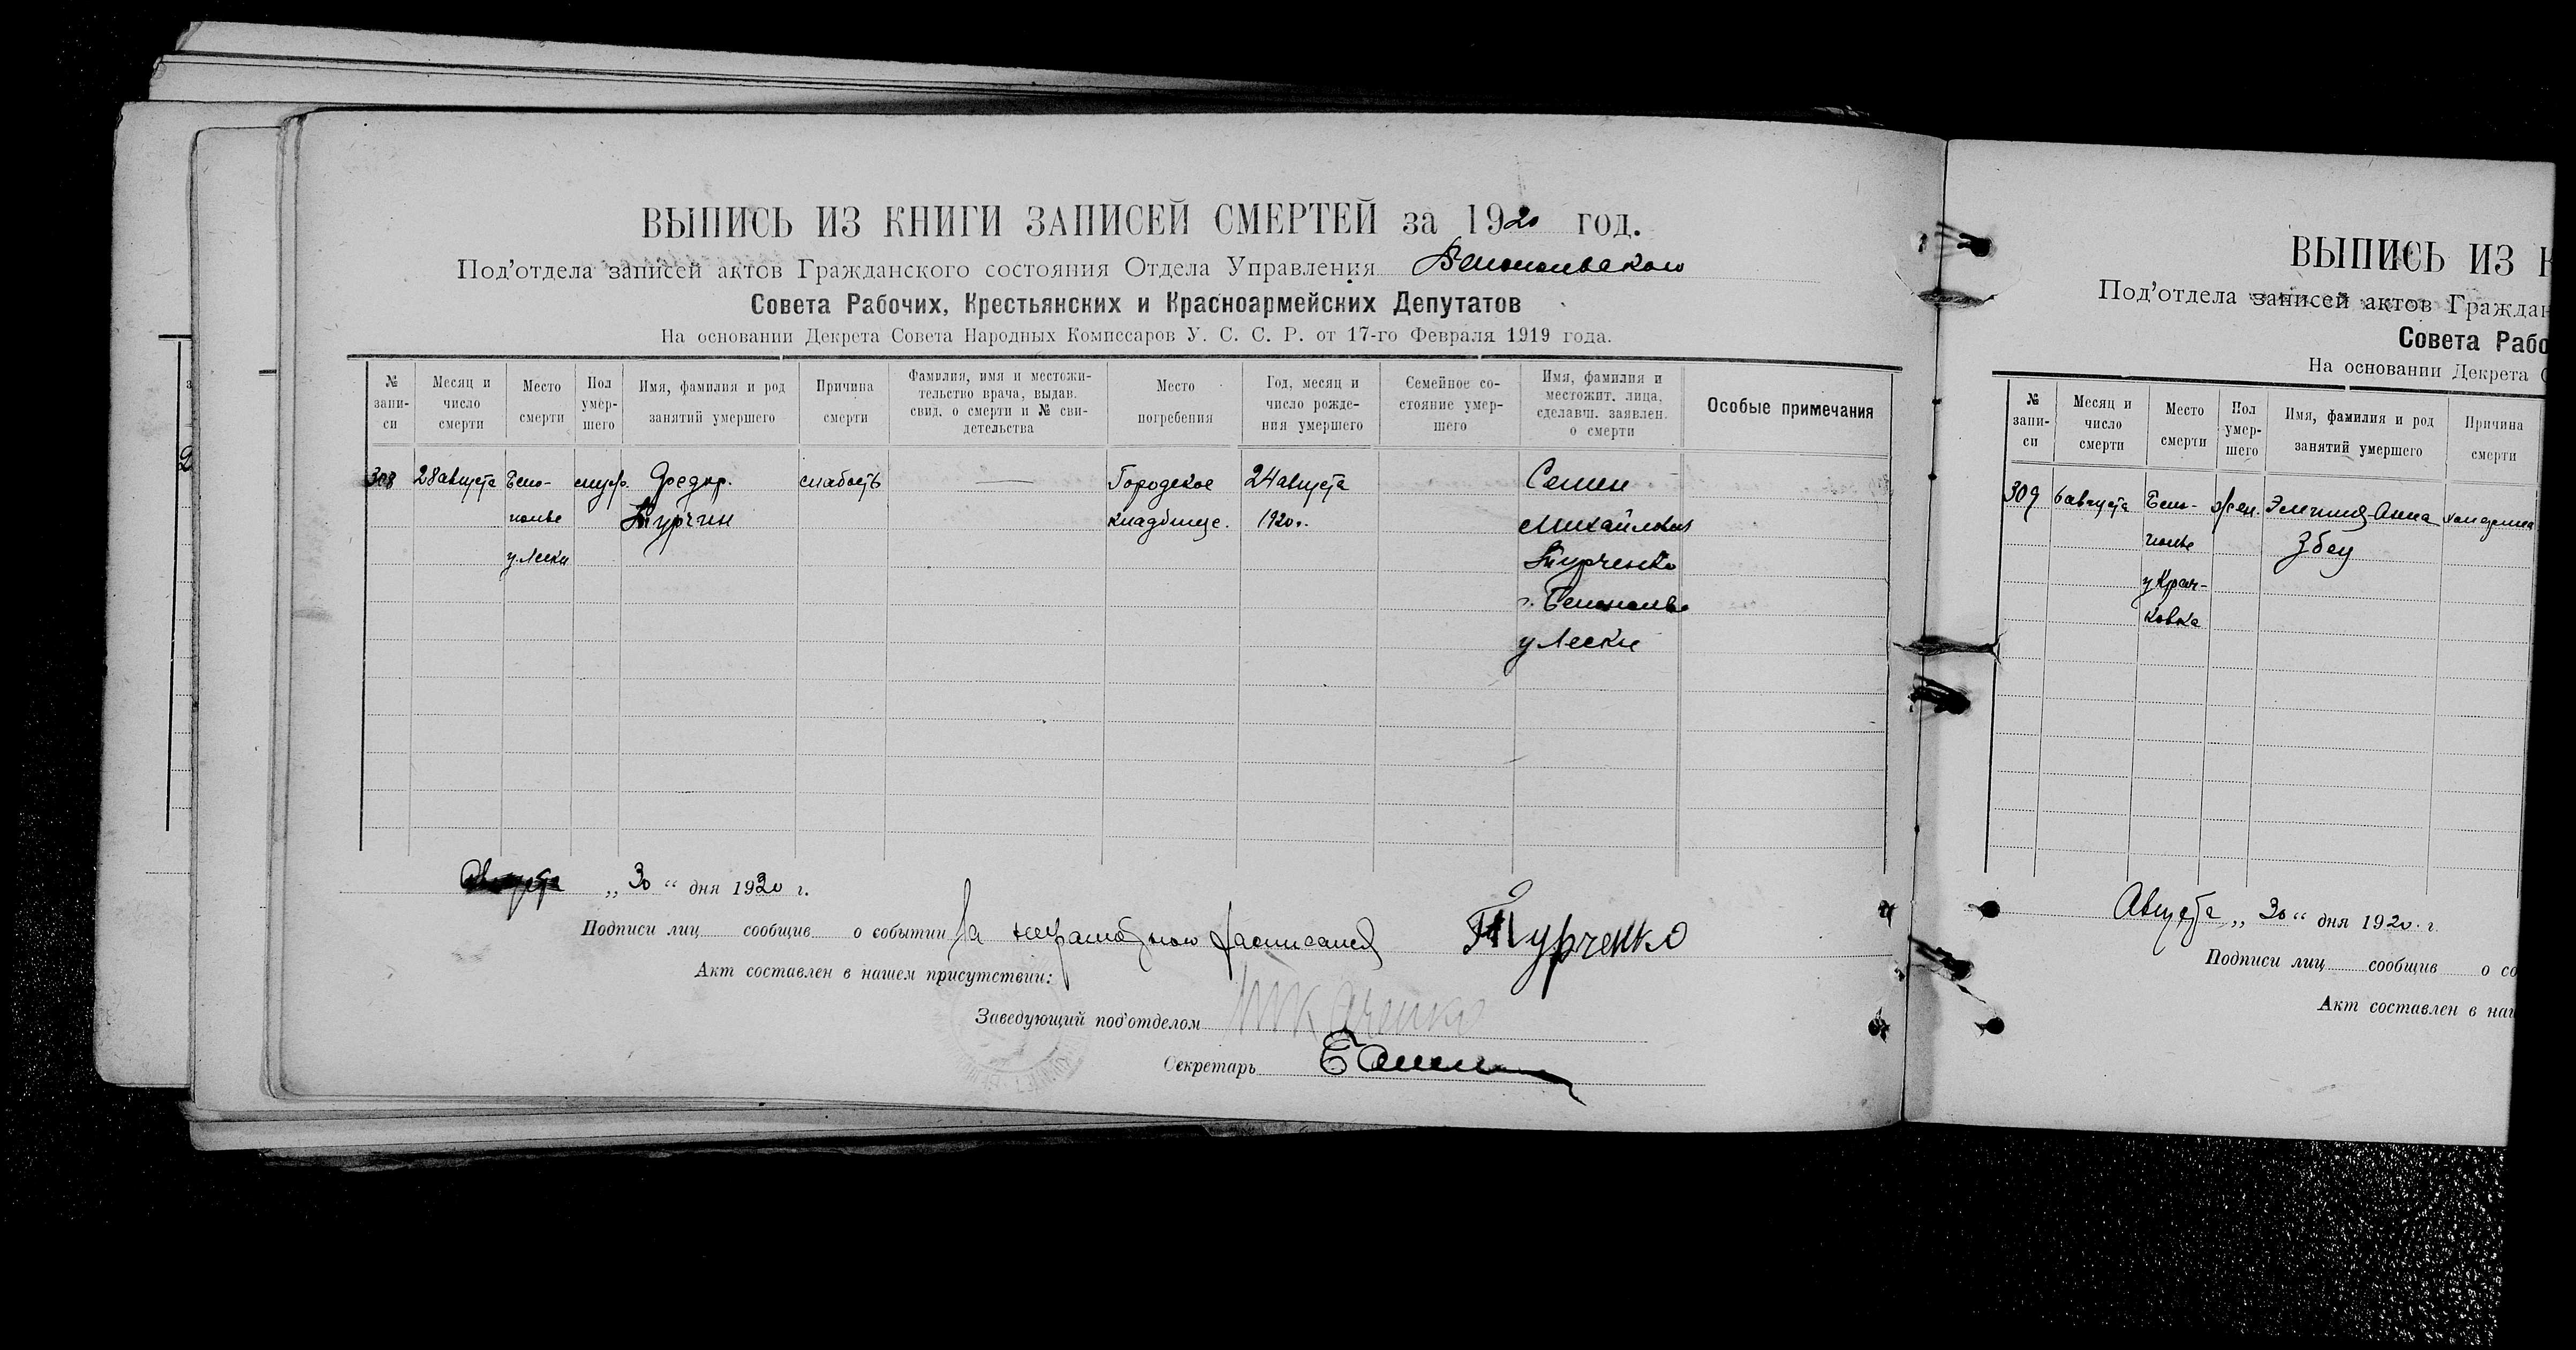 ВЫПИСЬ ИЗ КНИГИ ЗАПИСЕЙ СМЕРТЕЙ за 1920 год.
Под'отдела записей актов Гражданского состояния Отдела Управления Белопольского
Совета Рабочих, Крестьянских и Красноармейских Депутатов
На основании Декрета Совета Народных Комиссаров У. С. С. Р. от 17-го Февраля 1919 года.
№ запи-си
Месяц и число смерти
Место смерти
Пол умер-шего
Имя, фамилия и род занятий умершего
Причина смерти
Фамилия, имя и местожи-тельство врача, выдав. свид. о смерти и № сви-детельства
Место погребения
Год, месяц и число рожде-ния умершего
Семейное со-стояние умер-шего
Имя, фамилия и местожит. лица, сделавш. заявлен. о смерти
Особые примечания
308 28 августа Бело- муж. Федор. слабость — Городское 24 августа Семен
полье Турчин кладбище. 1920г. Михайлович
у Лески Турченко
г. Белополье
у Лески
Августа „ 30 “ дня 1920 г.
Подписи лиц сообщив о событии За неграмотного расписался Турченко
Акт составлен в нашем присутствии:
Заведующий под'отделом Ткаченко
Секретарь
ВЫПИСЬ ИЗ К
Под'отдела записей актов Граждан
Совета Рабо
На основании Декрета С
№ запи-си
Месяц и число смерти
Место смерти
Пол умер-шего
Имя, фамилия и род занятий умершего
Причина смерти
309 6 августа Бело- жен. Анна
полье
у Крач-
ковка
Августа „ 30 “ дня 1920 г.
Подписи лиц сообщив о со
Акт составлен в наш